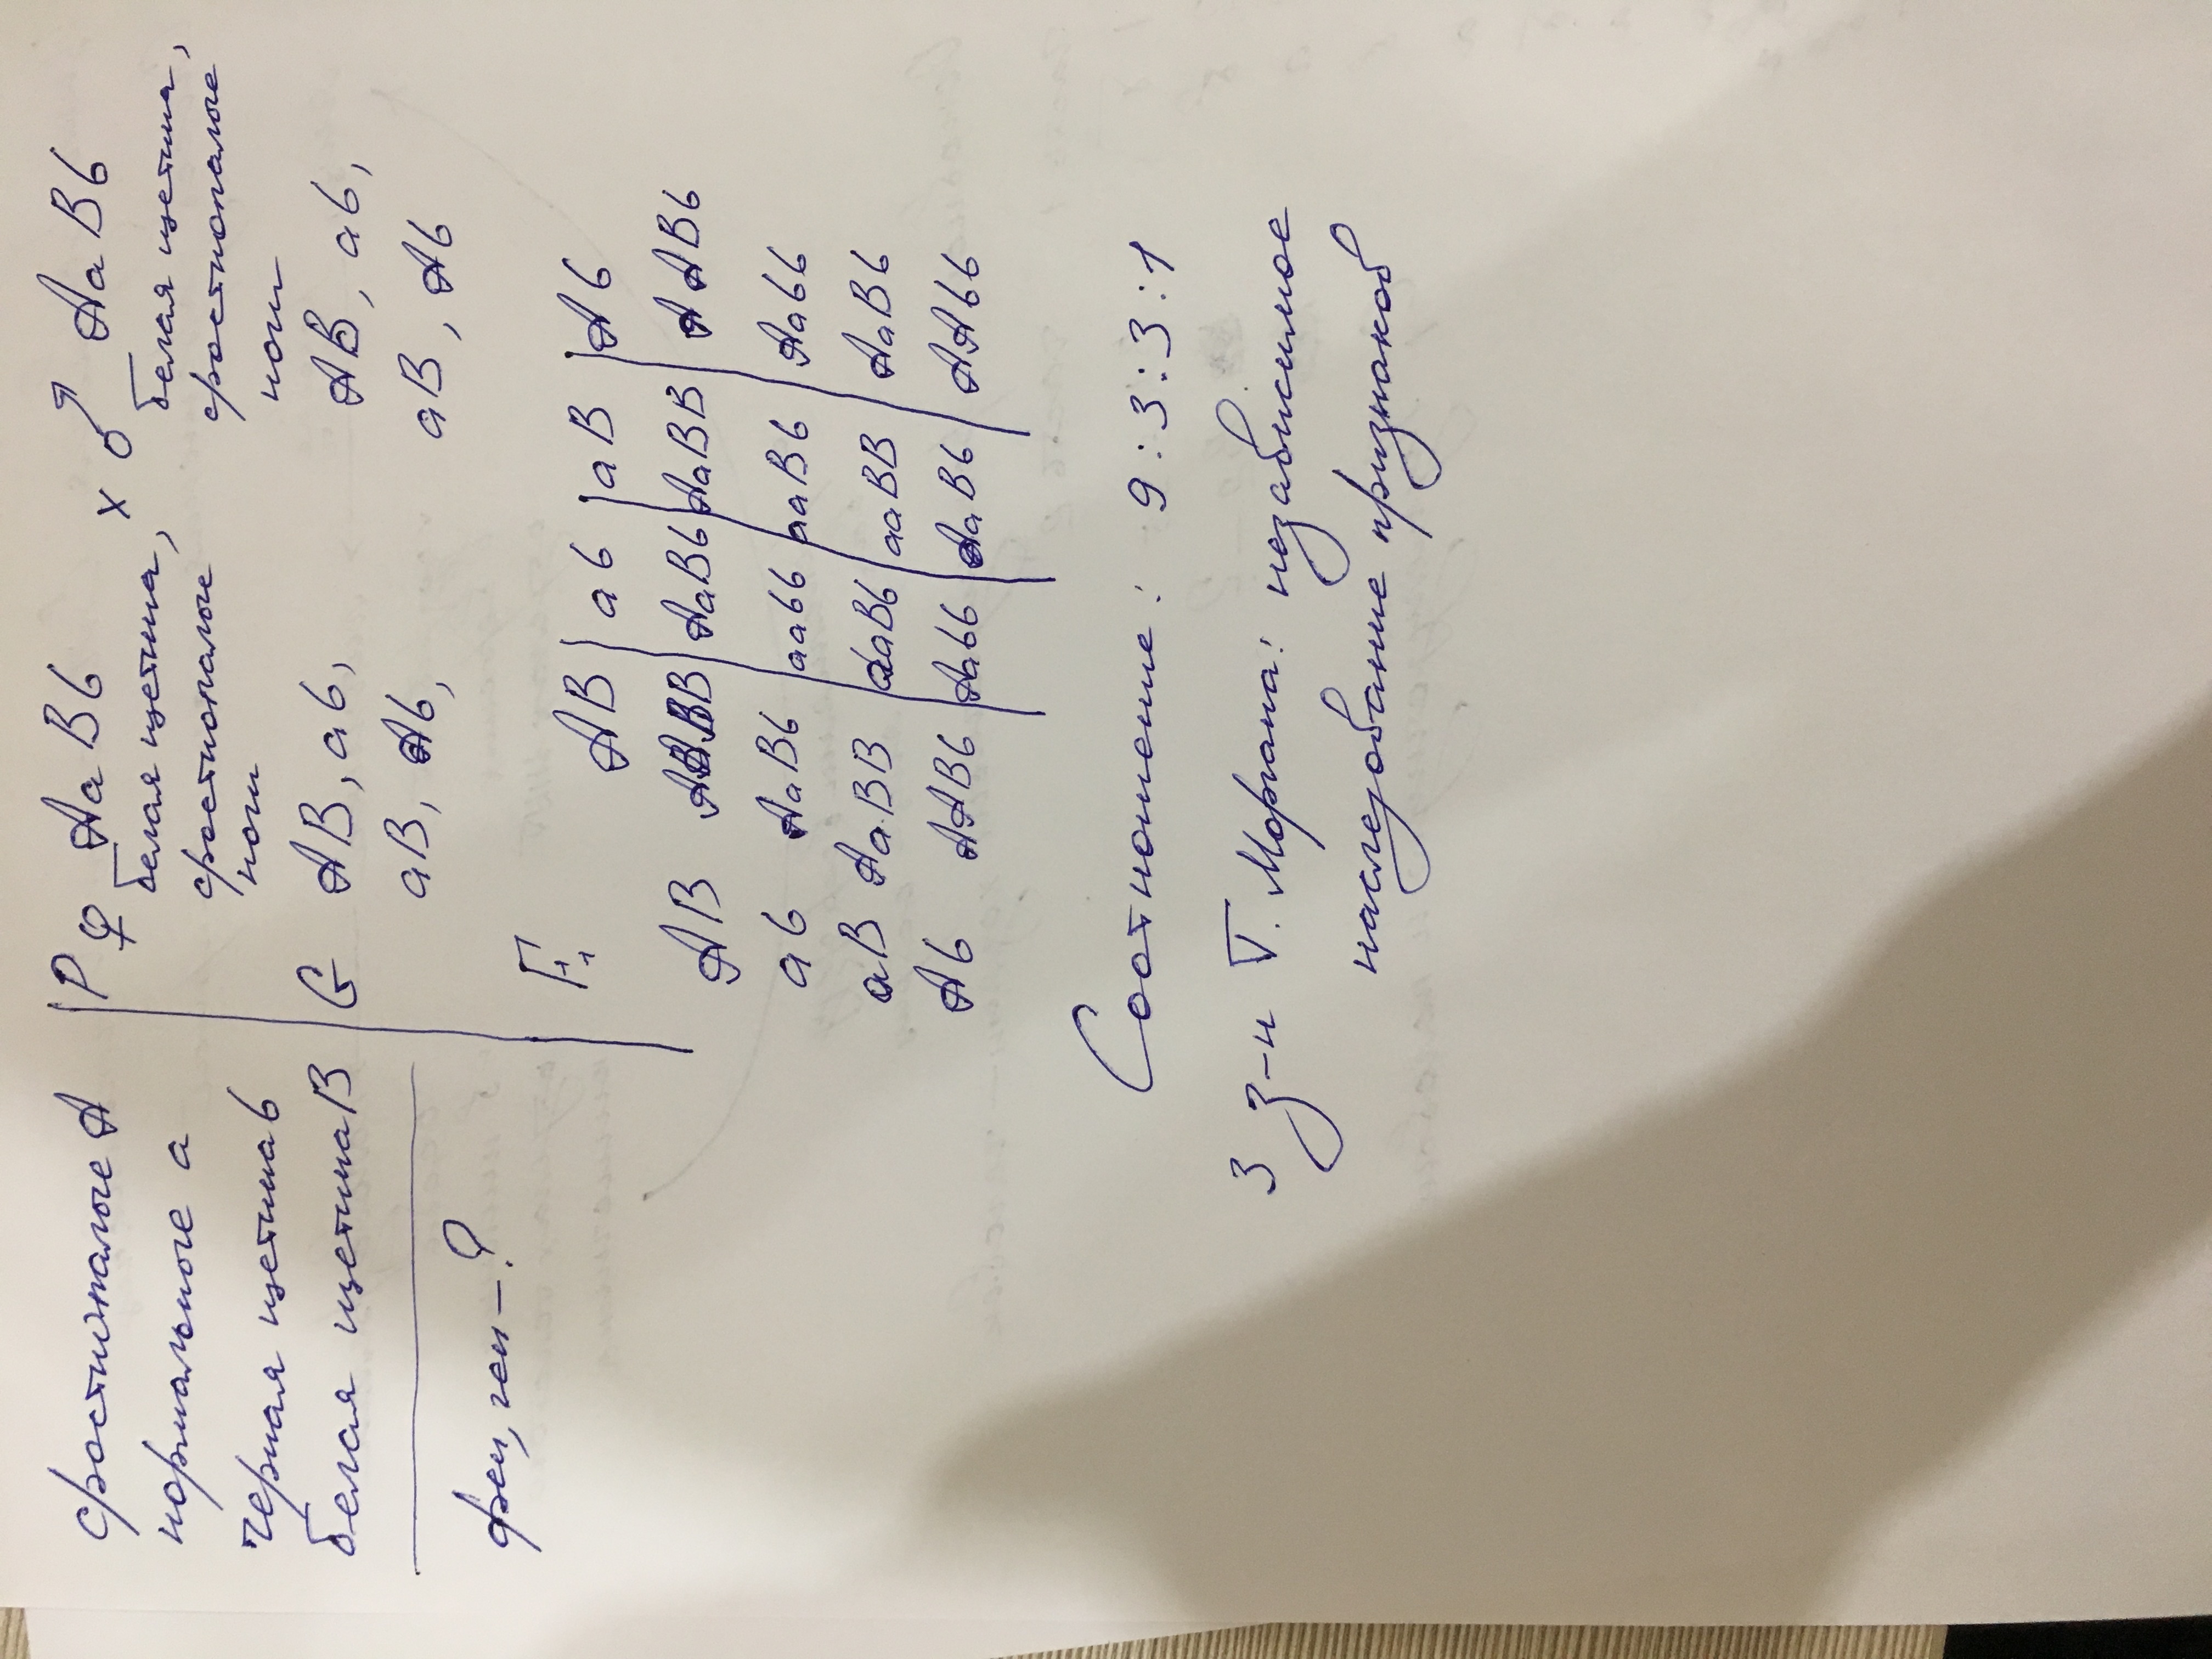 сростнопалые А
нормальные а
черная щетина b
белая щетина B
фен, ген - ?
P ♀ AaBb × ♂ AaBb
белая щетина, белая щетина,
сростнопалые сростнопалые
ноги ноги
G AB, ab, AB, ab,
aB, Ab, aB, Ab
F₁
AB ab aB Ab
AB AABB AaBb AaBB AABb
ab AaBb aabb aaBb Aabb
aB AaBB aaBb aaBB AaBb
Ab AABb Aabb AaBb AAbb
Соотношение: 9:3:3:1
3 з-н Т. Моргана: независимое
наследование признаков